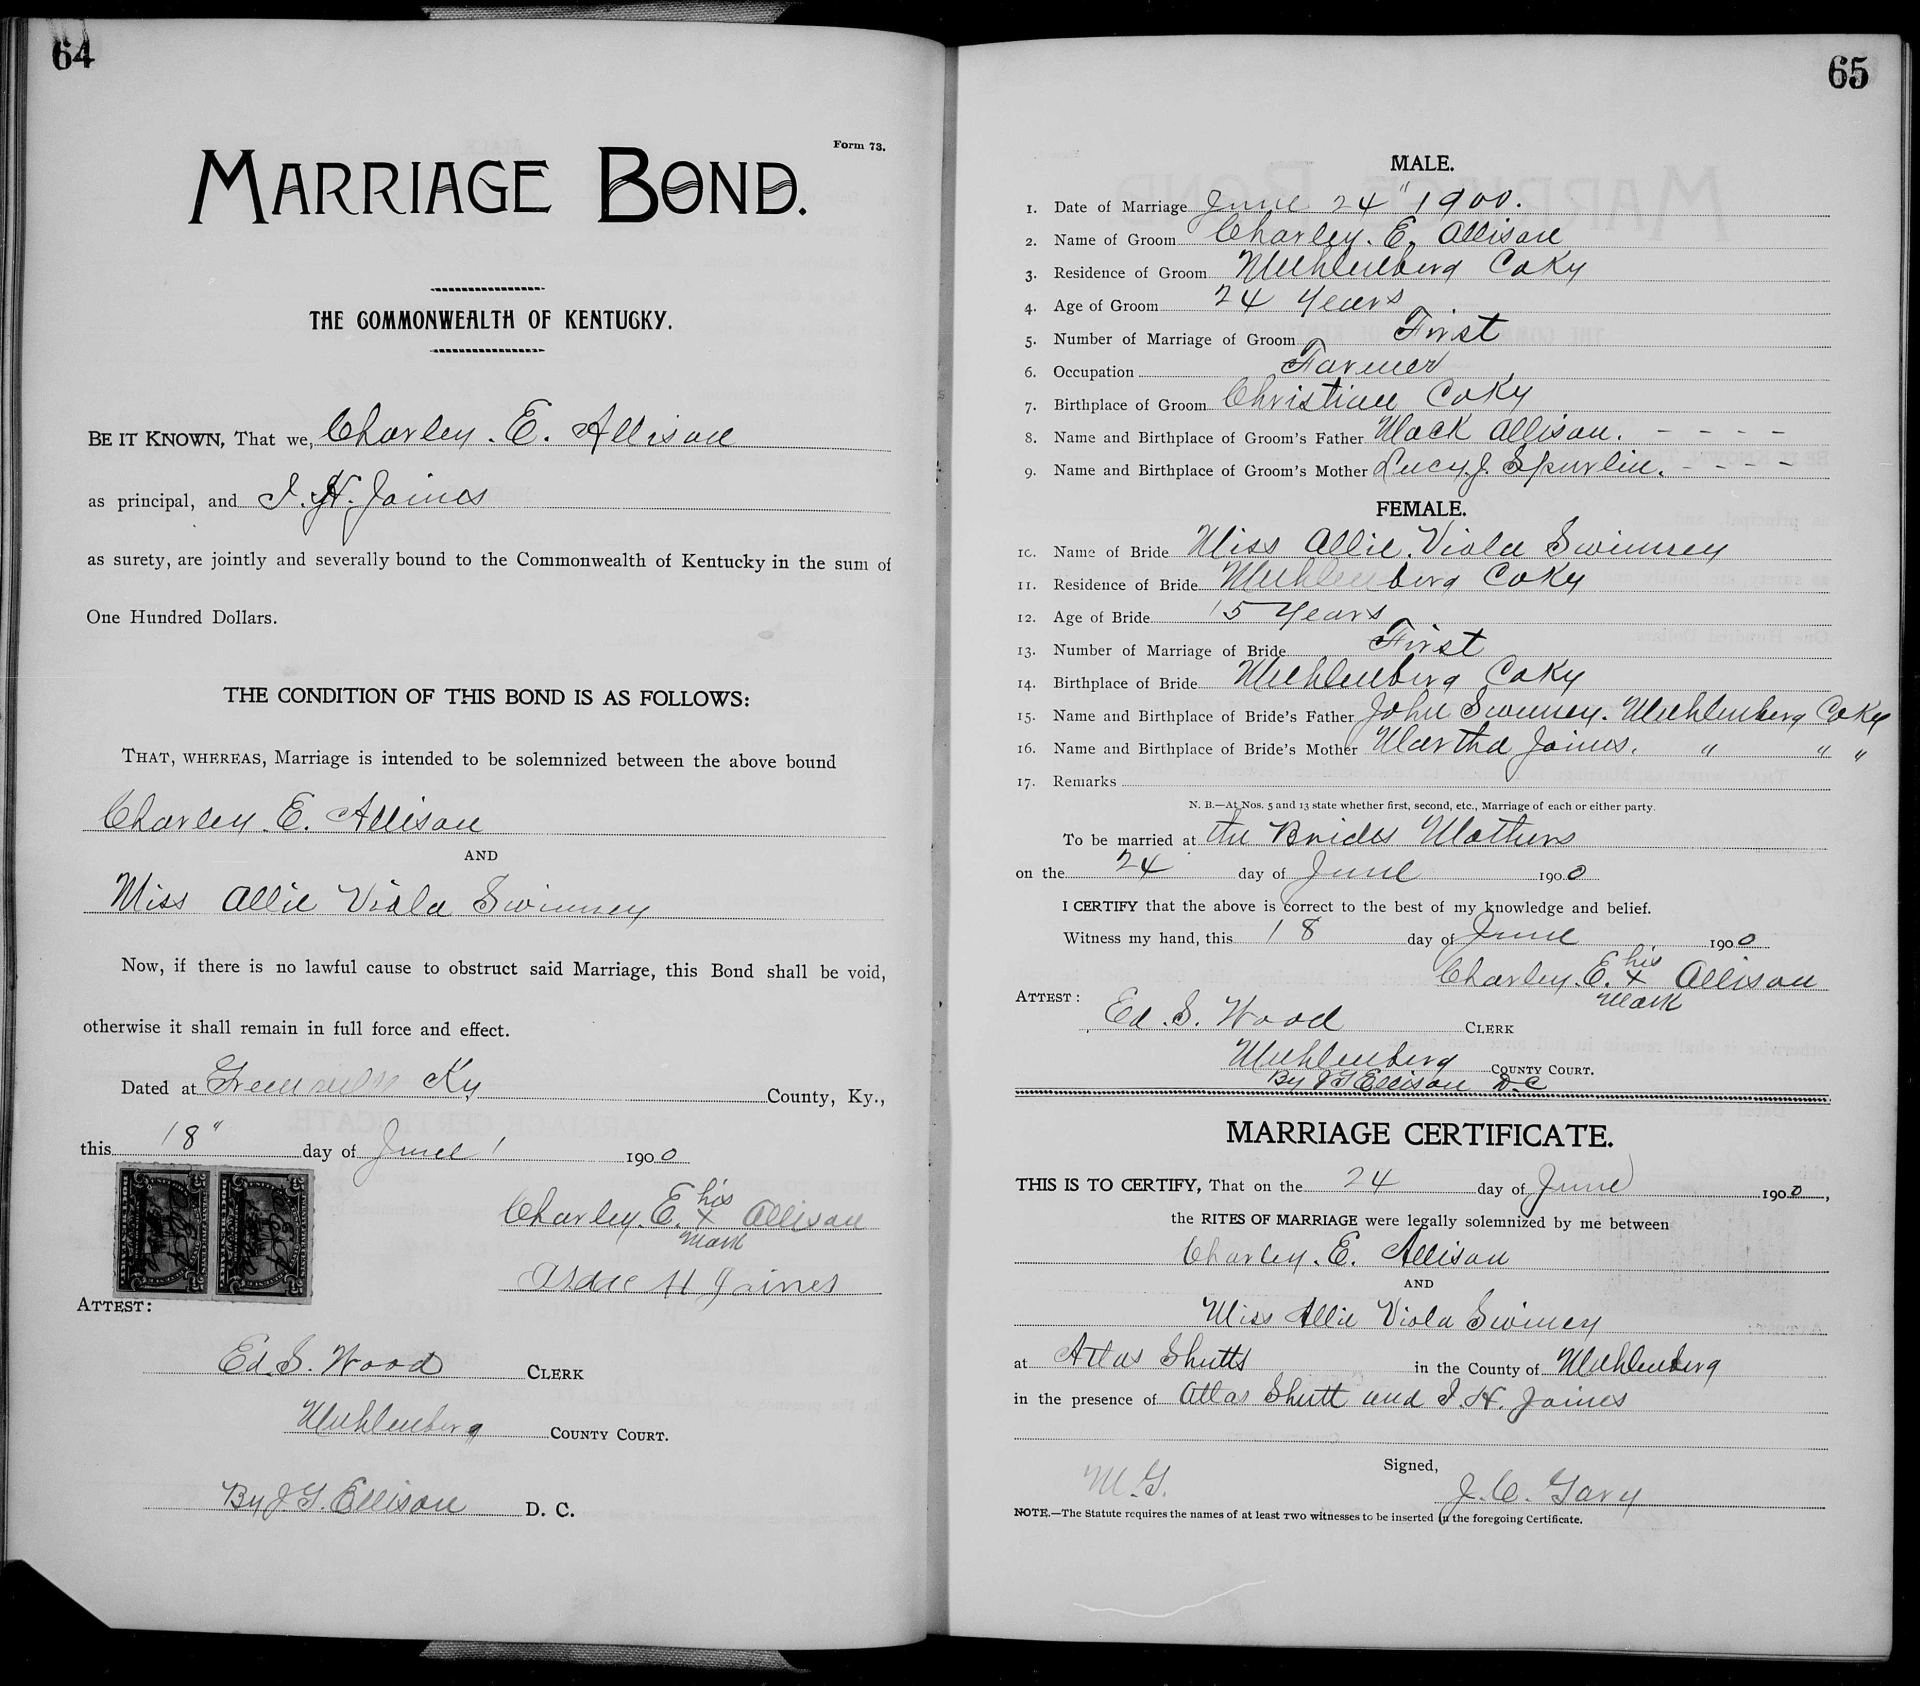 64
Form 73.
MARRIAGE BOND.
THE COMMONWEALTH OF KENTUCKY.
BE IT KNOWN, That we, Charley. E. Allison
as principal, and I. H. Jaines
as surety, are jointly and severally bound to the Commonwealth of Kentucky in the sum of
One Hundred Dollars.
THE CONDITION OF THIS BOND IS AS FOLLOWS:
THAT, WHEREAS, Marriage is intended to be solemnized between the above bound
Charley. E. Allison
AND
Miss Allie Viola Swinney
Now, if there is no lawful cause to obstruct said Marriage, this Bond shall be void,
otherwise it shall remain in full force and effect.
Dated at Greenville Ky County, Ky.,
this 18" day of June 1900
Charley. E. his x mark Allison
H Jaines
ATTEST:
Ed. S. Wood CLERK
Muhlenberg COUNTY COURT.
By J G. Ellison D. C.
65
MALE.
1. Date of Marriage June 24" 1900.
2. Name of Groom Charley. E. Allison
3. Residence of Groom Muhlenberg Co Ky
4. Age of Groom 24 Years
5. Number of Marriage of Groom First
6. Occupation Farmer
7. Birthplace of Groom Christian Co Ky
8. Name and Birthplace of Groom's Father Mack Allison. - - - -
9. Name and Birthplace of Groom's Mother Lucy. J. Spurlin. - - - -
FEMALE.
10. Name of Bride Miss Allie. Viola Swinney
11. Residence of Bride Muhlenberg Co Ky
12. Age of Bride 15 Years
13. Number of Marriage of Bride First
14. Birthplace of Bride Muhlenberg Co Ky
15. Name and Birthplace of Bride's Father John Swinney. Muhlenberg Co Ky
16. Name and Birthplace of Bride's Mother Martha Jaines. " " "
17. Remarks
N. B.—At Nos. 5 and 13 state whether first, second, etc., Marriage of each or either party.
To be married at the Brides Mothers
on the 24 day of June 1900
I CERTIFY that the above is correct to the best of my knowledge and belief.
Witness my hand, this 18 day of June 1900
Charley. E. his x mark Allison
ATTEST:
Ed. S. Wood CLERK
Muhlenberg COUNTY COURT.
By J G Ellison D. C
MARRIAGE CERTIFICATE.
THIS IS TO CERTIFY, That on the 24 day of June 1900,
the RITES OF MARRIAGE were legally solemnized by me between
Charley. E. Allison
AND
Miss Allie Viola Swiney
at Atlas Shutts in the County of Muhlenberg
in the presence of Atlas Shutt and I. H. Jaines
Signed,
M. G. J. C. Gary
NOTE.—The Statute requires the names of at least TWO witnesses to be inserted in the foregoing Certificate.